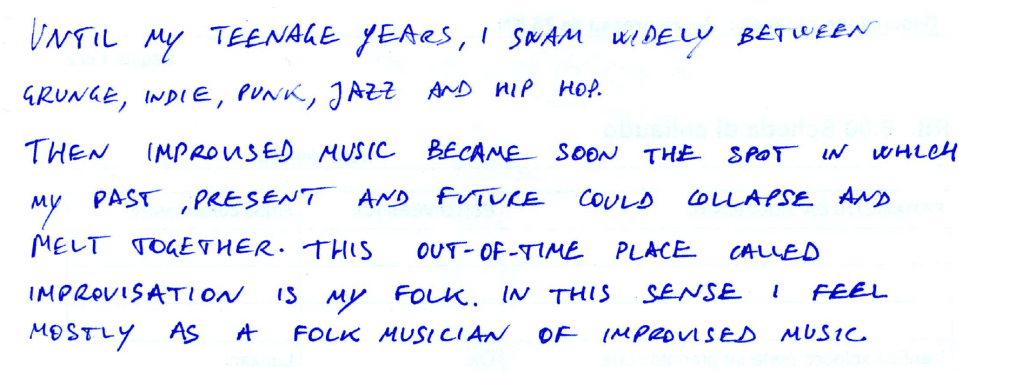 UNTIL MY TEENAGE YEARS, I SWAM WIDELY BETWEEN
GRUNGE, INDIE, PUNK, JAZZ AND HIP HOP.
THEN IMPROVISED MUSIC BECAME SOON THE SPOT IN WHICH
MY PAST, PRESENT AND FUTURE COULD COLLAPSE AND
MELT TOGETHER. THIS OUT-OF-TIME PLACE CALLED
IMPROVISATION IS MY FOLK. IN THIS SENSE I FEEL
MOSTLY AS A FOLK MUSICIAN OF IMPROVISED MUSIC.